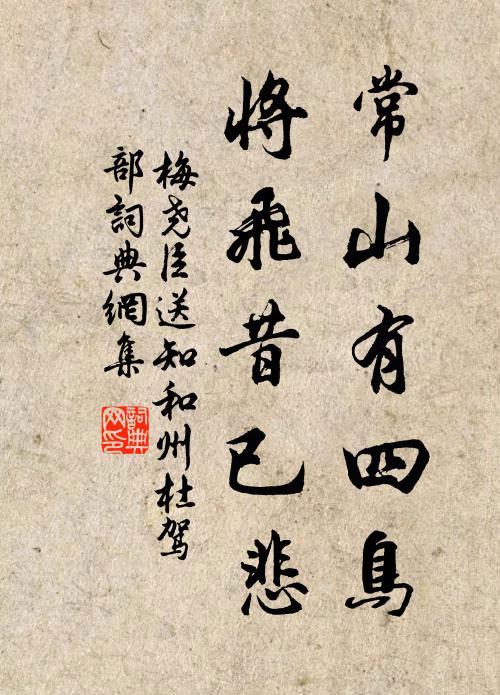 常山有四鳥
將飛昔已悲
梅堯臣送知和州杜駕
部詞典網集
詞典
网印